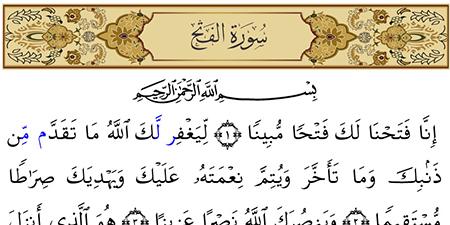 سُورَةُ الفَتْحِ
بِسْمِ اللَّهِ الرَّحْمَٰنِ الرَّحِيمِ
إِنَّا فَتَحْنَا لَكَ فَتْحًا مُّبِينًا ﴿١﴾ لِّيَغْفِرَ لَكَ اللَّهُ مَا تَقَدَّمَ مِن
ذَنۢبِكَ وَمَا تَأَخَّرَ وَيُتِمَّ نِعْمَتَهُۥ عَلَيْكَ وَيَهْدِيَكَ صِرَٰطًا
مُّسْتَقِيمًا ﴿٢﴾ وَيَنصُرَكَ اللَّهُ نَصْرًا عَزِيزًا ﴿٣﴾ هُوَ الَّذِي أَنزَلَ